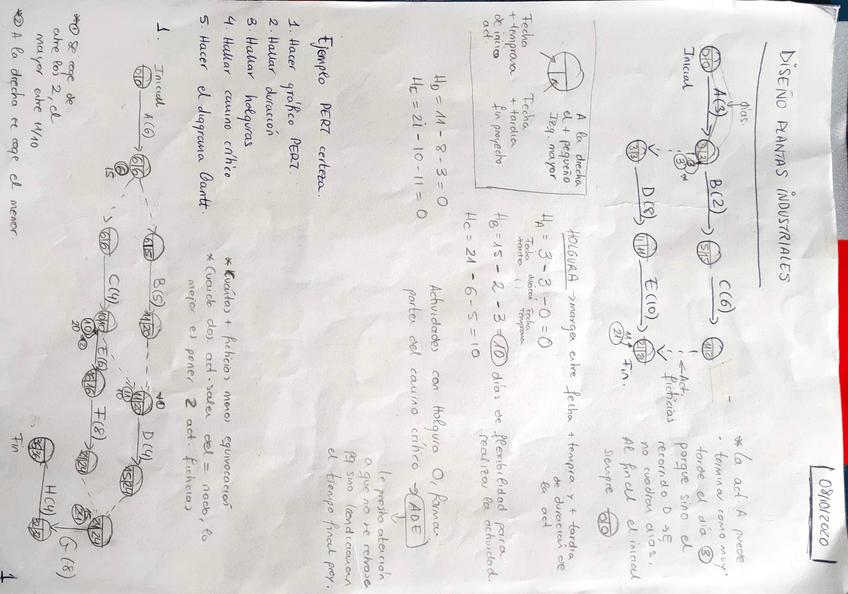 08/10/2020
DISEÑO PLANTAS INDUSTRIALES
días
0|0 A(3) 3|3 B(2) 5|15 C(6)
Inicial
3|3 D(8) 11|11 E(10) 21|21
Act. ficticias
Fin.
* La act. A puede
terminar como muy
tarde el día ③
porque sino el
recorrido D→E
no cuadran días.
Al final el inicial
siempre 0|0
A la drecha
el + pequeño
Izq. mayor
Fecha
+ temprana
de inicio
act
Fecha
+ tardia
fin proyecto
HOLGURA → margen entre fecha + tempra y + tardia
de duracion de
la act
H_A = 3 - 3 - 0 = 0
Fecha tardia
duració
Fecha temprana
H_B = 15 - 2 - 3 = 10 días de flexibilidad para
realizar la actividad.
H_C = 21 - 6 - 5 = 10
H_D = 11 - 8 - 3 = 0
H_E = 21 - 10 - 11 = 0
Actividades con Holgura 0, forman
partes del camino crítico → ADE
le presto atención
a que no se retrase
pq sino condicionan
el tiempo final proy.
Ejemplo PERT certeza.
1. Hacer gráfico PERT
2. Hallar duración
3. Hallar holguras
4. Hallar camino crítico
5. Hacer el diagrama Gantt.
* Cuantos + ficticios menos equivocación
* Cuando dos act. salen del = nodo, lo
mejor es poner 2 act. ficticias
1.
Inicial
0|0 A(6) 6|6
6|15 B(5) 11|20
D(4)
6|6 C(4) 10|10 E(6) 16|16 F(8)
G(8)
H(4)
Fin
*① Se coge de
entre los 2, el
mayor entre 11/10
*② A la drecha se coge el menor.
1